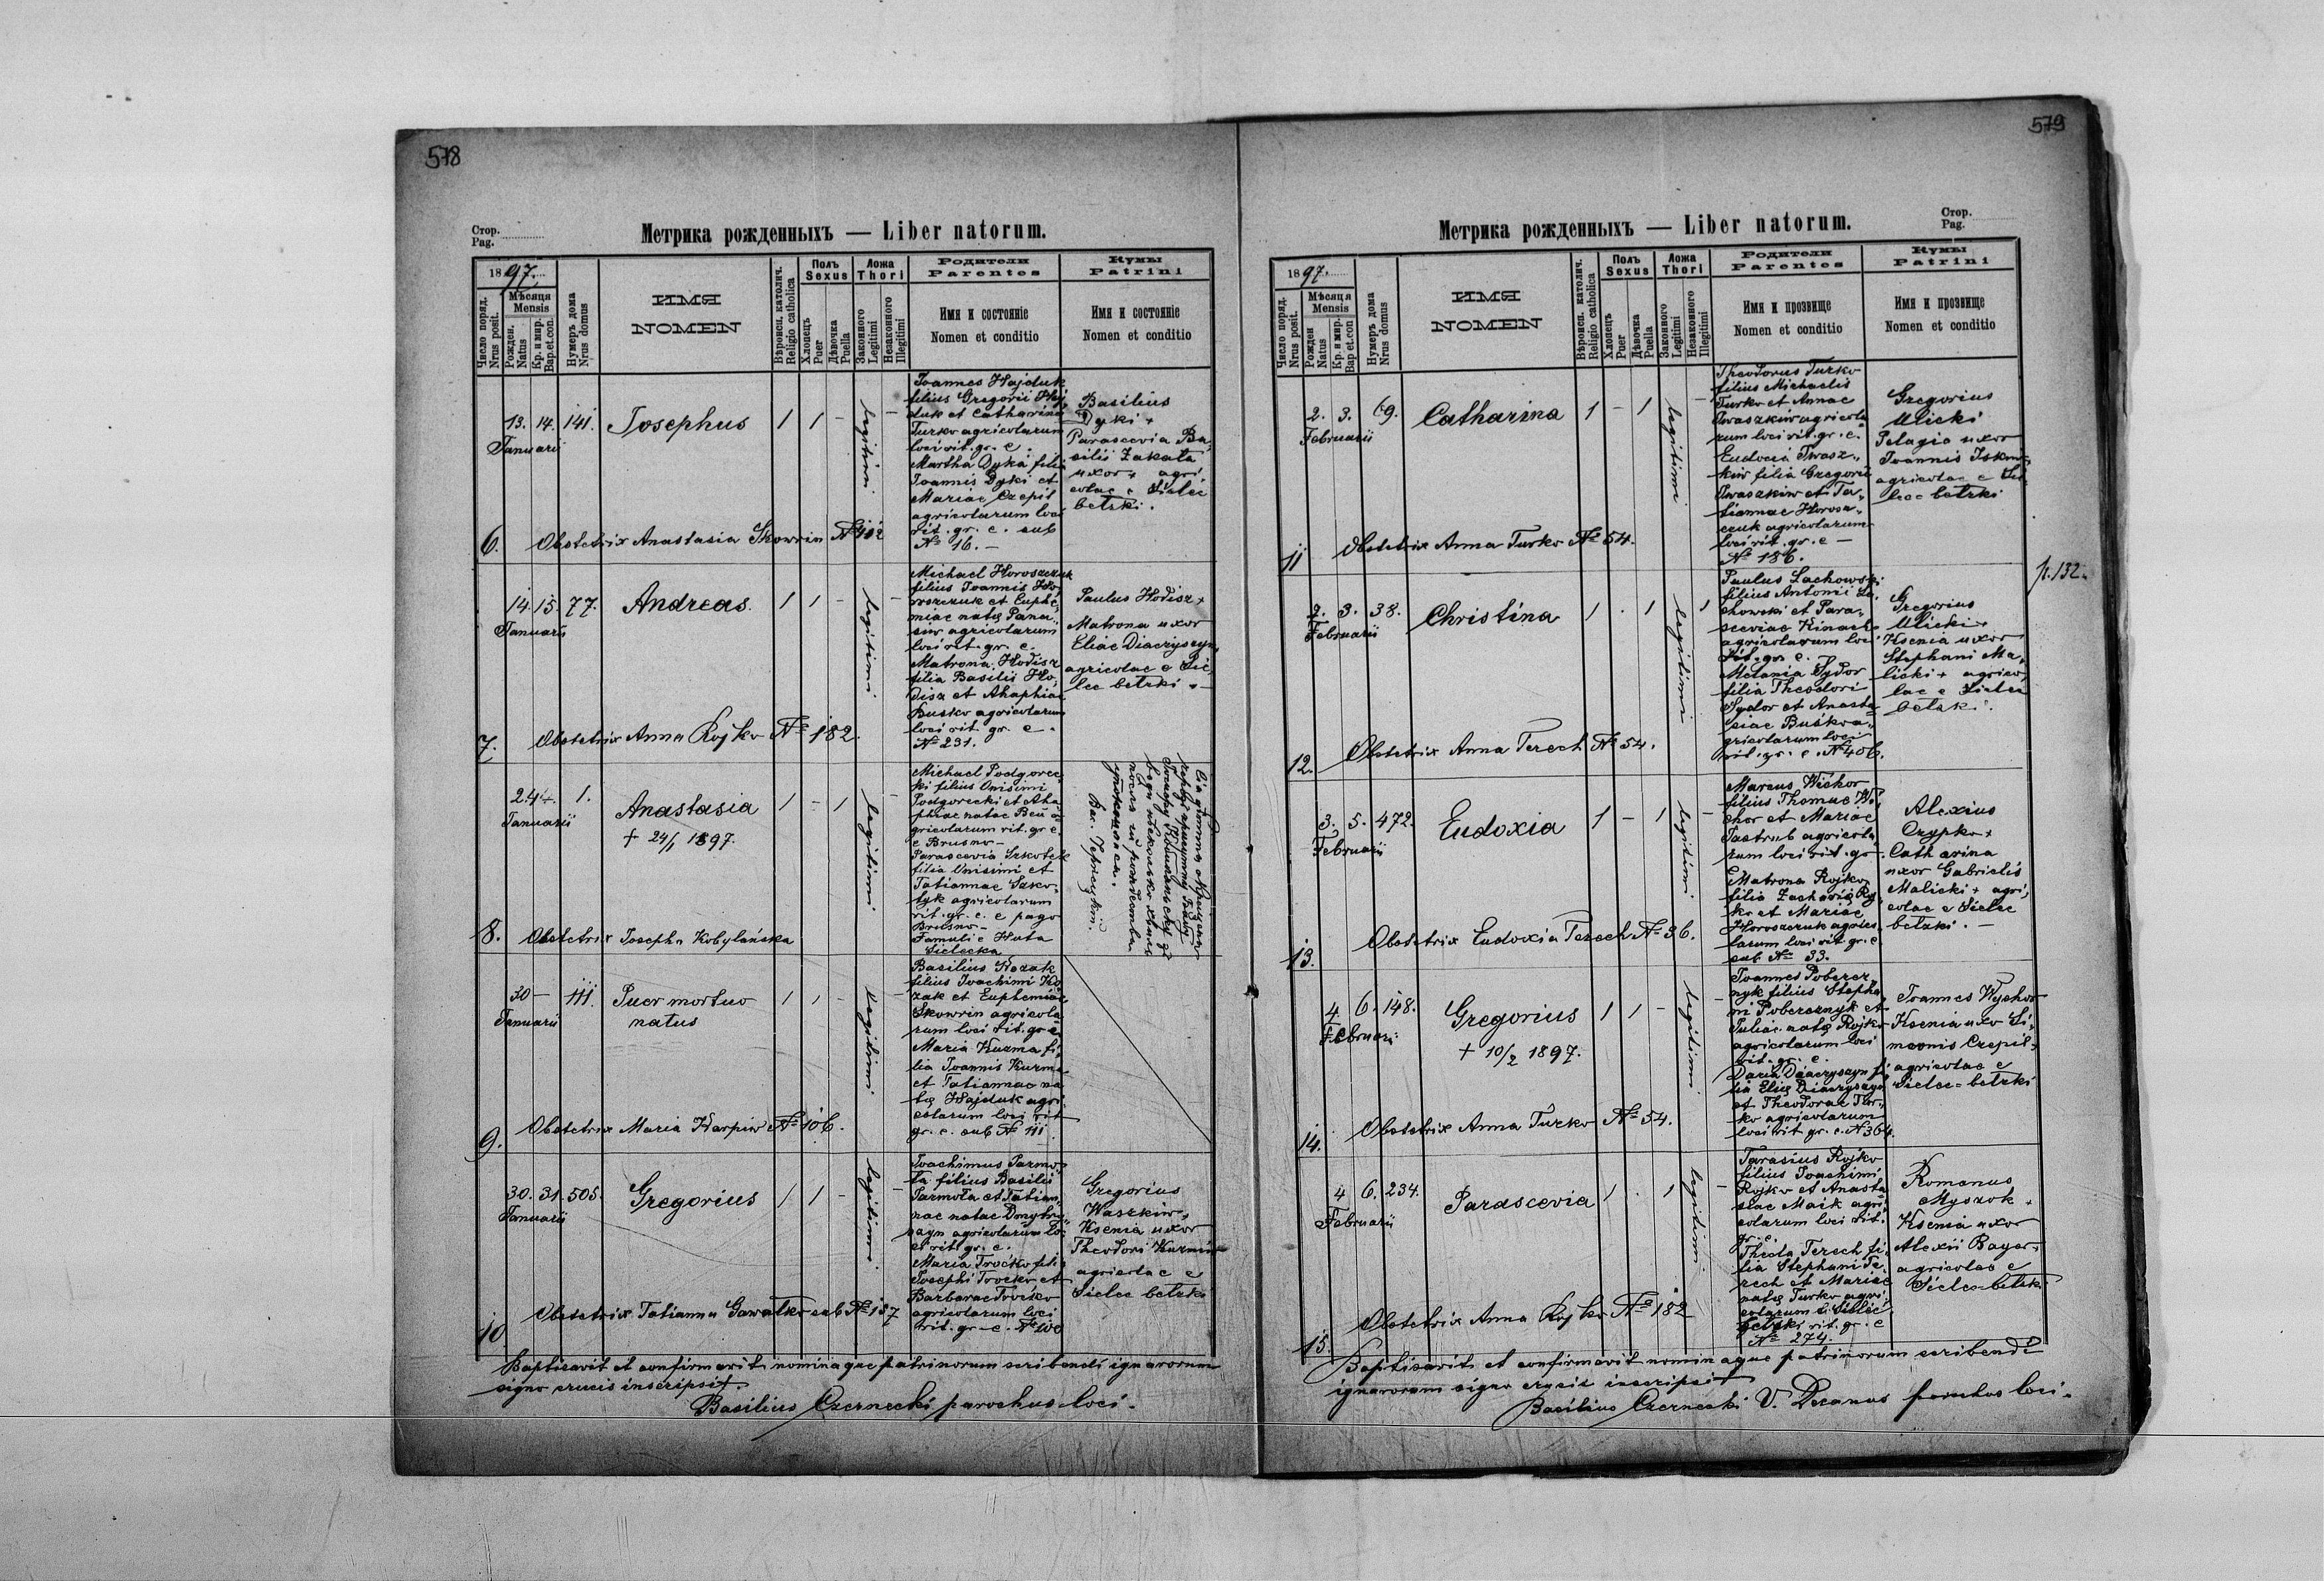 578
Стор.
Pag.
Метрика рожденныхъ — Liber natorum.
1897.
Число поряд.
Nrus posit.
Мѣсяця
Mensis
Рожден.
Natus
Кр. и мир.
Bap.et.con.
Нумеръ дома
Nrus domus
ИМЯ
NOMEN
Вѣроисп. католич.
Religio catholica
Полъ
Sexus
Хлопецъ
Puer
Дѣвочка
Puella
Ложа
Thori
Законного
Legitimi
Незаконного
Illegitimi
Родители
Parentes
Имя и состояніе
Nomen et conditio
Кумы
Patrini
Имя и состояніе
Nomen et conditio
13. 14. 141. Josephus 1 1 - legitimi -
Januarii
Joannes Hajduk
filius Gregorii Haj
duk et Catharina
Turko agricolarum
loci rit. gr. c.
Martha Dyka filia
Joannis Dyki et
Mariae Czepil
agricolarum loci
rit. gr. c. sub
No 16. -
Basilius
Dyki +
Parascevia Ba
silii Zakala
uxor + agri
colae e Sielec
bełzki.
6. Obstetrix Anastasia Skowrin No 112
14. 15. 77. Andreas. 1 1 - legitimi
Januarii
Michael Horoszczuk
filius Joannis Ho
roszczuk et Euphe
miae natę Pana
siw agricolarum
loci rit. gr. c.
Matrona Hodisz
filia Basilii Ho
disz et Ahaphiae
Busko agricolarum
loci rit gr. c.
No 231.
Paulus Hodisz +
Matrona uxor
Eliae Diaczyszyn,
agricolae e Sie
lec bełzki. -
7. Obstetrix Anna Rojko No 182.
24. 1. Anastasia 1 - 1 legitimi -
Januarii
+ 24/1 1897.
Michael Podgorec
ki filius Onisimi
Podgorecki et Aha
phiae natae Beń a
gricolarum rit. gr. c.
e Brusno -
Parascevia
filia Onisimi et
Tatiannae
agricolarum
rit. gr. c. e pago
Brusno -
Famuli e Huta
Sielecka
8. Obstetrix Josepha Kobylańska
30 — 111. Puer mortuo 1 1 - legitimi
Januarii
natus
Basilius Kozak
filius Joachimi Ko
zak et Euphemiae
Skowrin agricola
rum loci rit. gr. c.
Maria Kuzma fi
lia Joannis Kuzma
et Tatiannae na
tę Hajduk agri
colarum loci rit
gr. c. sub No 111
9. Obstetrix Maria Karpiw No 106.
30. 31. 505. Gregorius 1 1 - legitimi -
Januarii
Joachimus Jarmo
ła filius Basilii
Jarmoła et Tatian
nae natae Dmytry
szyn agricolarum lo
ci rit. gr. c.
Maria Troćko filia
Josephi Troćko et
Barbarae Troćko
agricolarum loci
rit. gr. c. No 100
Gregorius
Waszkiw +
Ksenia uxor
Theodori
agricolae e
Sielec bełzki
10 Obstetrix Tatianna Gawałko sub No 187
Baptisavit et confirmavit nominaque patrinorum scribendi ignarorum
signo crucis inscripsit.
Basilius Czernecki parochus loci.
579
Стор.
Pag.
Метрика рожденныхъ — Liber natorum.
1897.
Число поряд.
Nrus posit.
Мѣсяця
Mensis
Рожден
Natus
Кр. и мир.
Bap.et.con
Нумеръ дома
Nrus domus
ИМЯ
NOMEN
Вѣроисп. католич.
Religio catholica
Полъ
Sexus
Хлопецъ
Puer
Дѣвочка
Puella
Ложа
Thori
Законного
Legitimi
Незаконного
Illegitimi
Родители
Parentes
Имя и прозвище
Nomen et conditio
Кумы
Patrini
Имя и прозвище
Nomen et conditio
2. 3. 69. Catharina 1 - 1 legitimi -
Februarii
Theodorus Turko
filius Michaelis
Turko et Annae
Iwaszkiw agricola
rum loci rit. gr. c.
Eudocia Iwasz
kiw filia Gregorii
Iwaszkiw et Ta
tiannae Horosz
czuk agricolarum
loci rit. gr. c -
No 186.
Gregorius
Ulicki
Pelagia uxor
Joannis
agricolae e Sie
lec bełzki
11 Obstetrix Anna Turko No 54.
2. 3. 38. Christina 1 . 1 legitimi 1
Februarii
Paulus Lachowski
filius Antonii La
chowski et Para
sceviae Kinach
agricolarum loci
rit. gr. c.
Melania Sydor
filia Theodori
Sydor et Anasta
siae Buśko a
gricolarum loci
rit. gr. c. No 406.
Gregorius
Ulicki +
Ksenia uxor
Stephani Ma
licki + agrico
lae e Sielec
bełzki.
p. 132.
12. Obstetrix Anna Terech No 54.
3. 5. 472. Eudoxia 1 - 1 legitimi -
Februarii
Marcus Wichor
filius Thomae Wi
chor et Mariae
Jastrub agricola
rum loci rit. gr.
Matrona Rojko
filia Zacharię Roj
ko et Mariae
Horoszczuk agrico
larum loci rit. gr. c.
sub No 33.
Alexius
Czypko +
Catharina
uxor Gabrielis
Malicki + agri
colae e Sielec
bełzki. -
13. Obstetrix Eudoxia Terech No 36.
4 6. 148. Gregorius 1 1 - legitimi -
Februarii
+ 10/2 1897.
Joannes Pobereż
nyk filius Stepha
ni Pobereżnyk et
Juliae natę Rojko
agricolarum loci
rit. gr. c.
Daria Diaczyszyn fi
lia Elię Diaczyszyn
et Theodorae Tur
ko agricolarum
loci rit gr. c. N 364.
Joannes Wychor
Ksenia uxo Si
meonis Czepil +
agricolae e
Sielec-bełzki
14. Obstetrix Anna Turko No 54.
4 6. 234. Parascevia 1 . 1 legitimi -
Februarii
Tarasius Rojko
filius Joachimi
Rojko et Anasta
siae Maik agri
colarum loci rit.
gr. c.
Thecla Terech fi
lia Stephani Te
rech et Mariae
natę Turko agri
colarum e Sielec
bełzki rit. gr. c
No 274.
Romanus
Myszok +
Ksenia uxor
Alexii Bayer +
agricolae e
Sielec-bełzki
15. Obstetrix Anna Rojko No 182
Baptisavit et confirmavit nominaque patrinorum scribendi
ignarorum signo crucis inscripsit
Basilius Czernecki V. Decanus parochus loci.